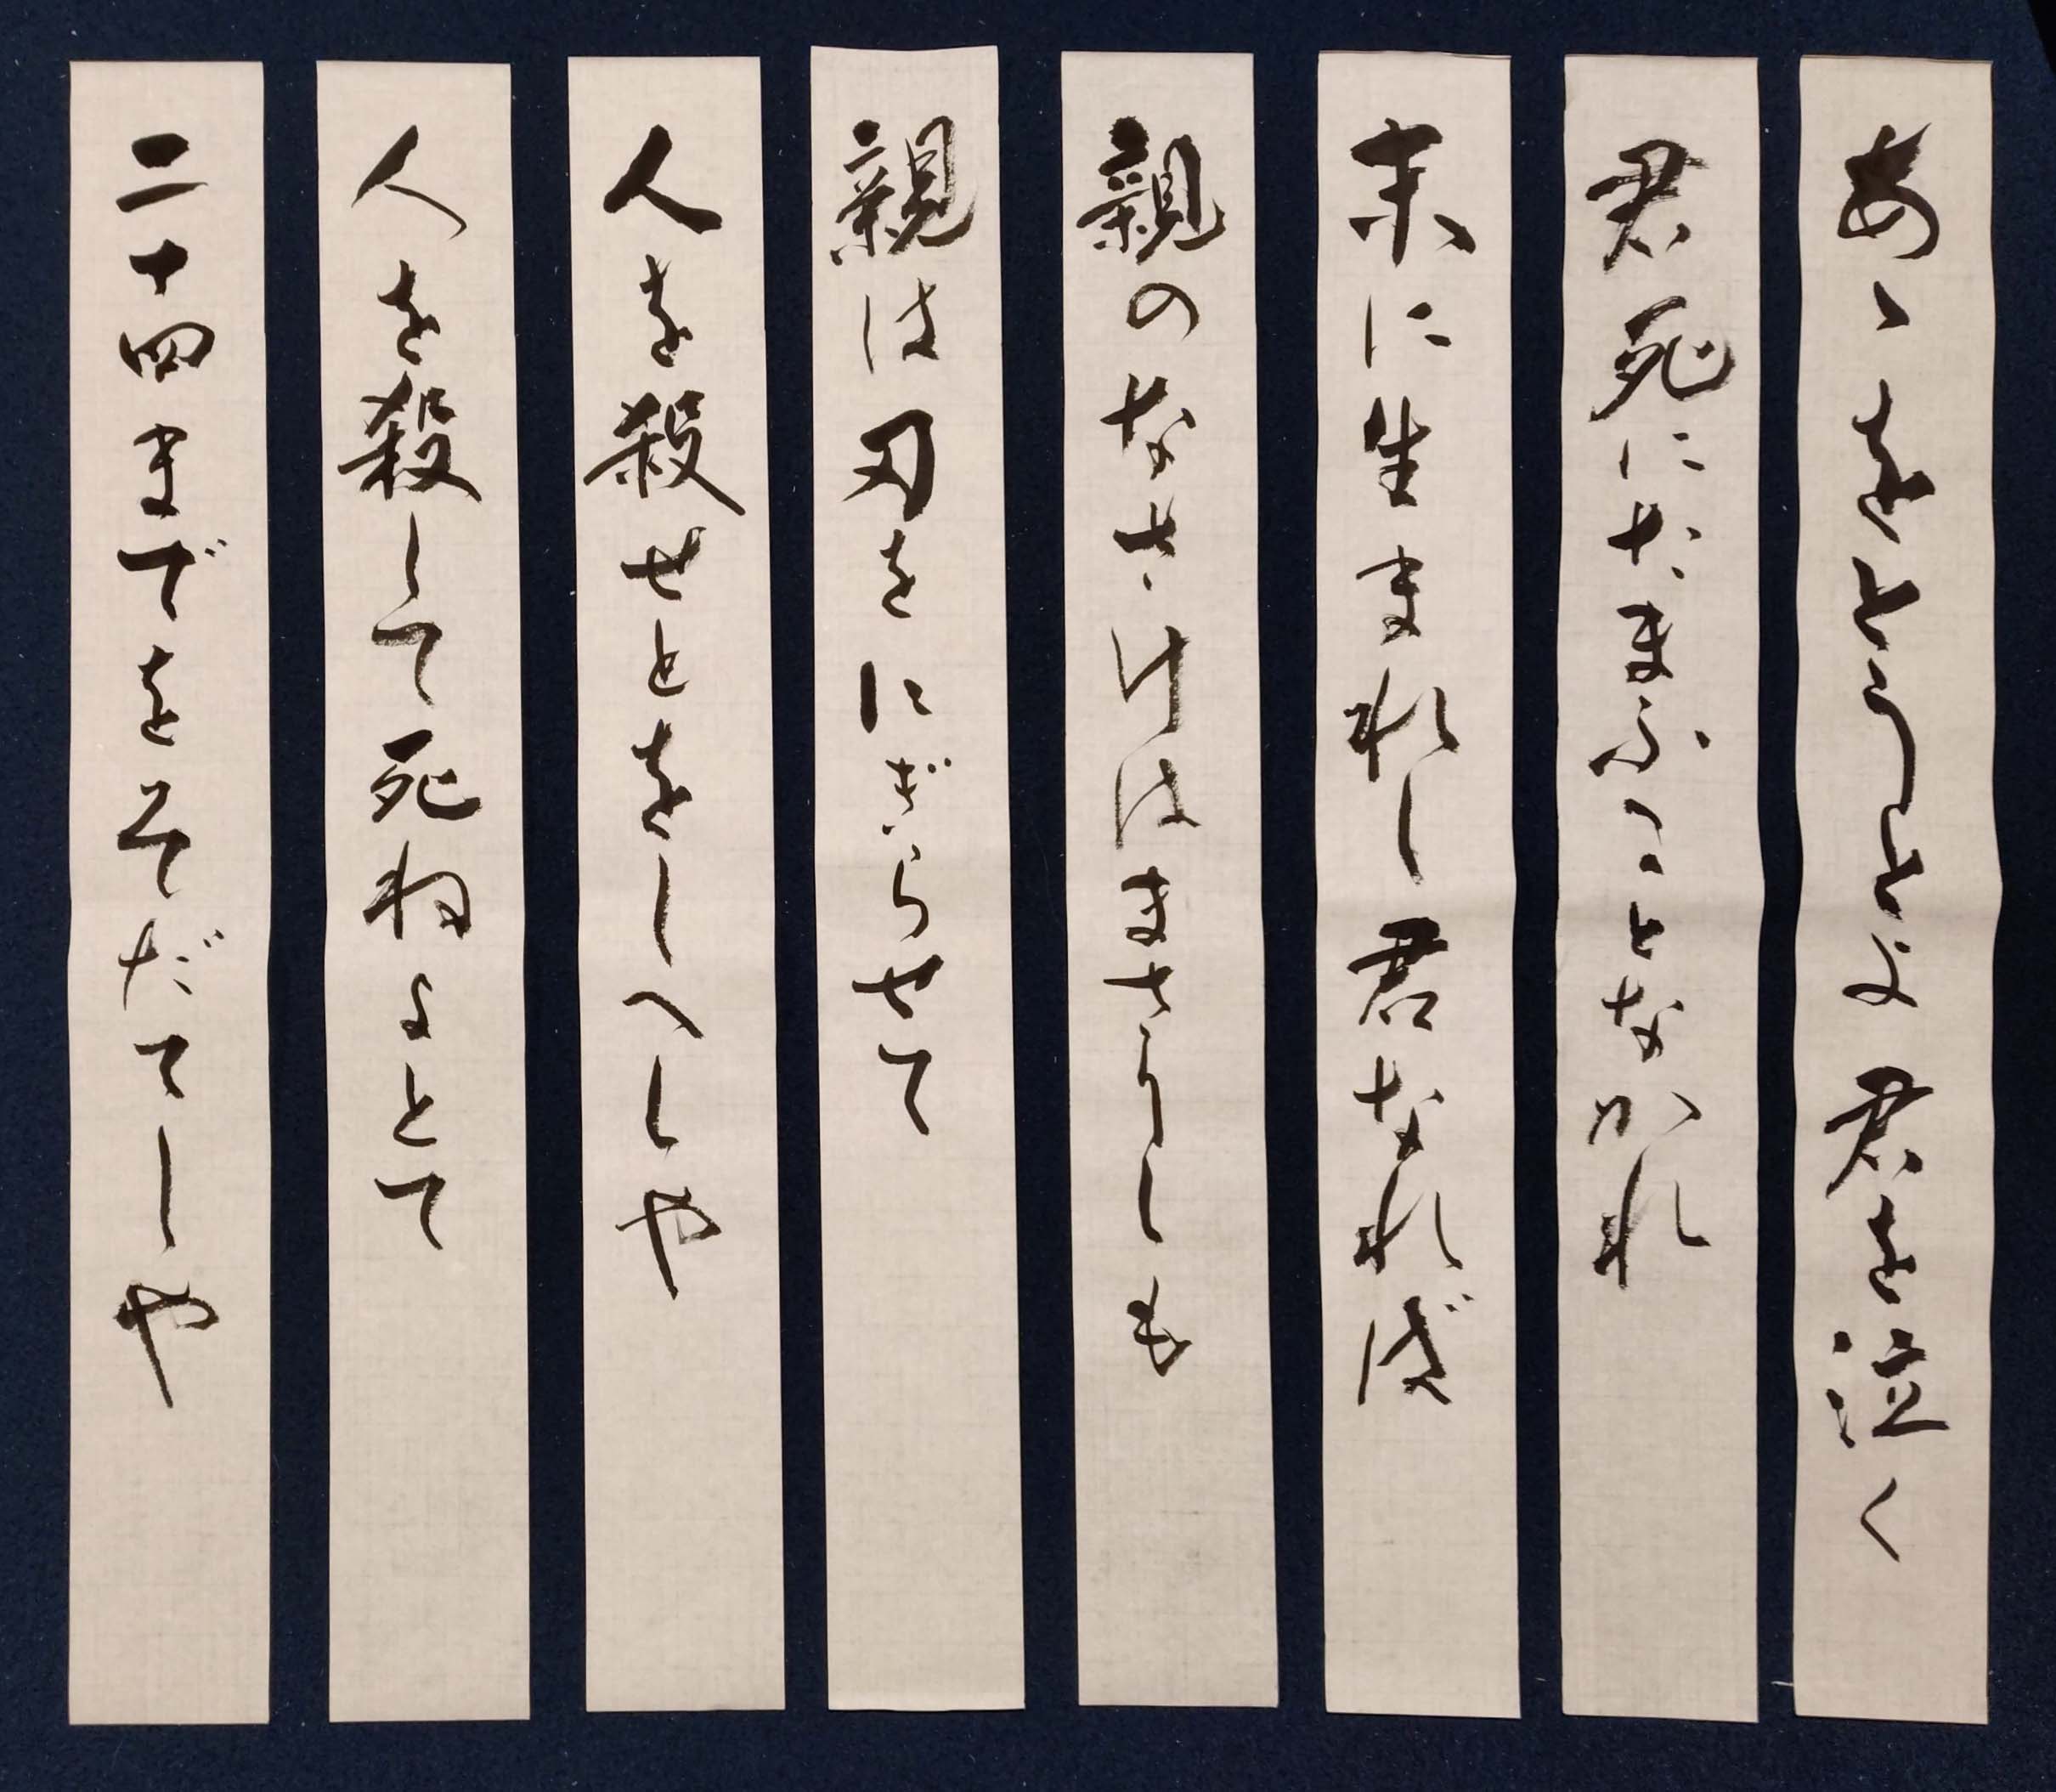 あゝをとうとよ君を泣く
君死にたまふことなかれ
末に生まれし君なれば
親のなさけはまさりしも
親は刃をにぎらせて
人を殺せとをしへしや
人を殺して死ねよとて
二十四までをそだてしや